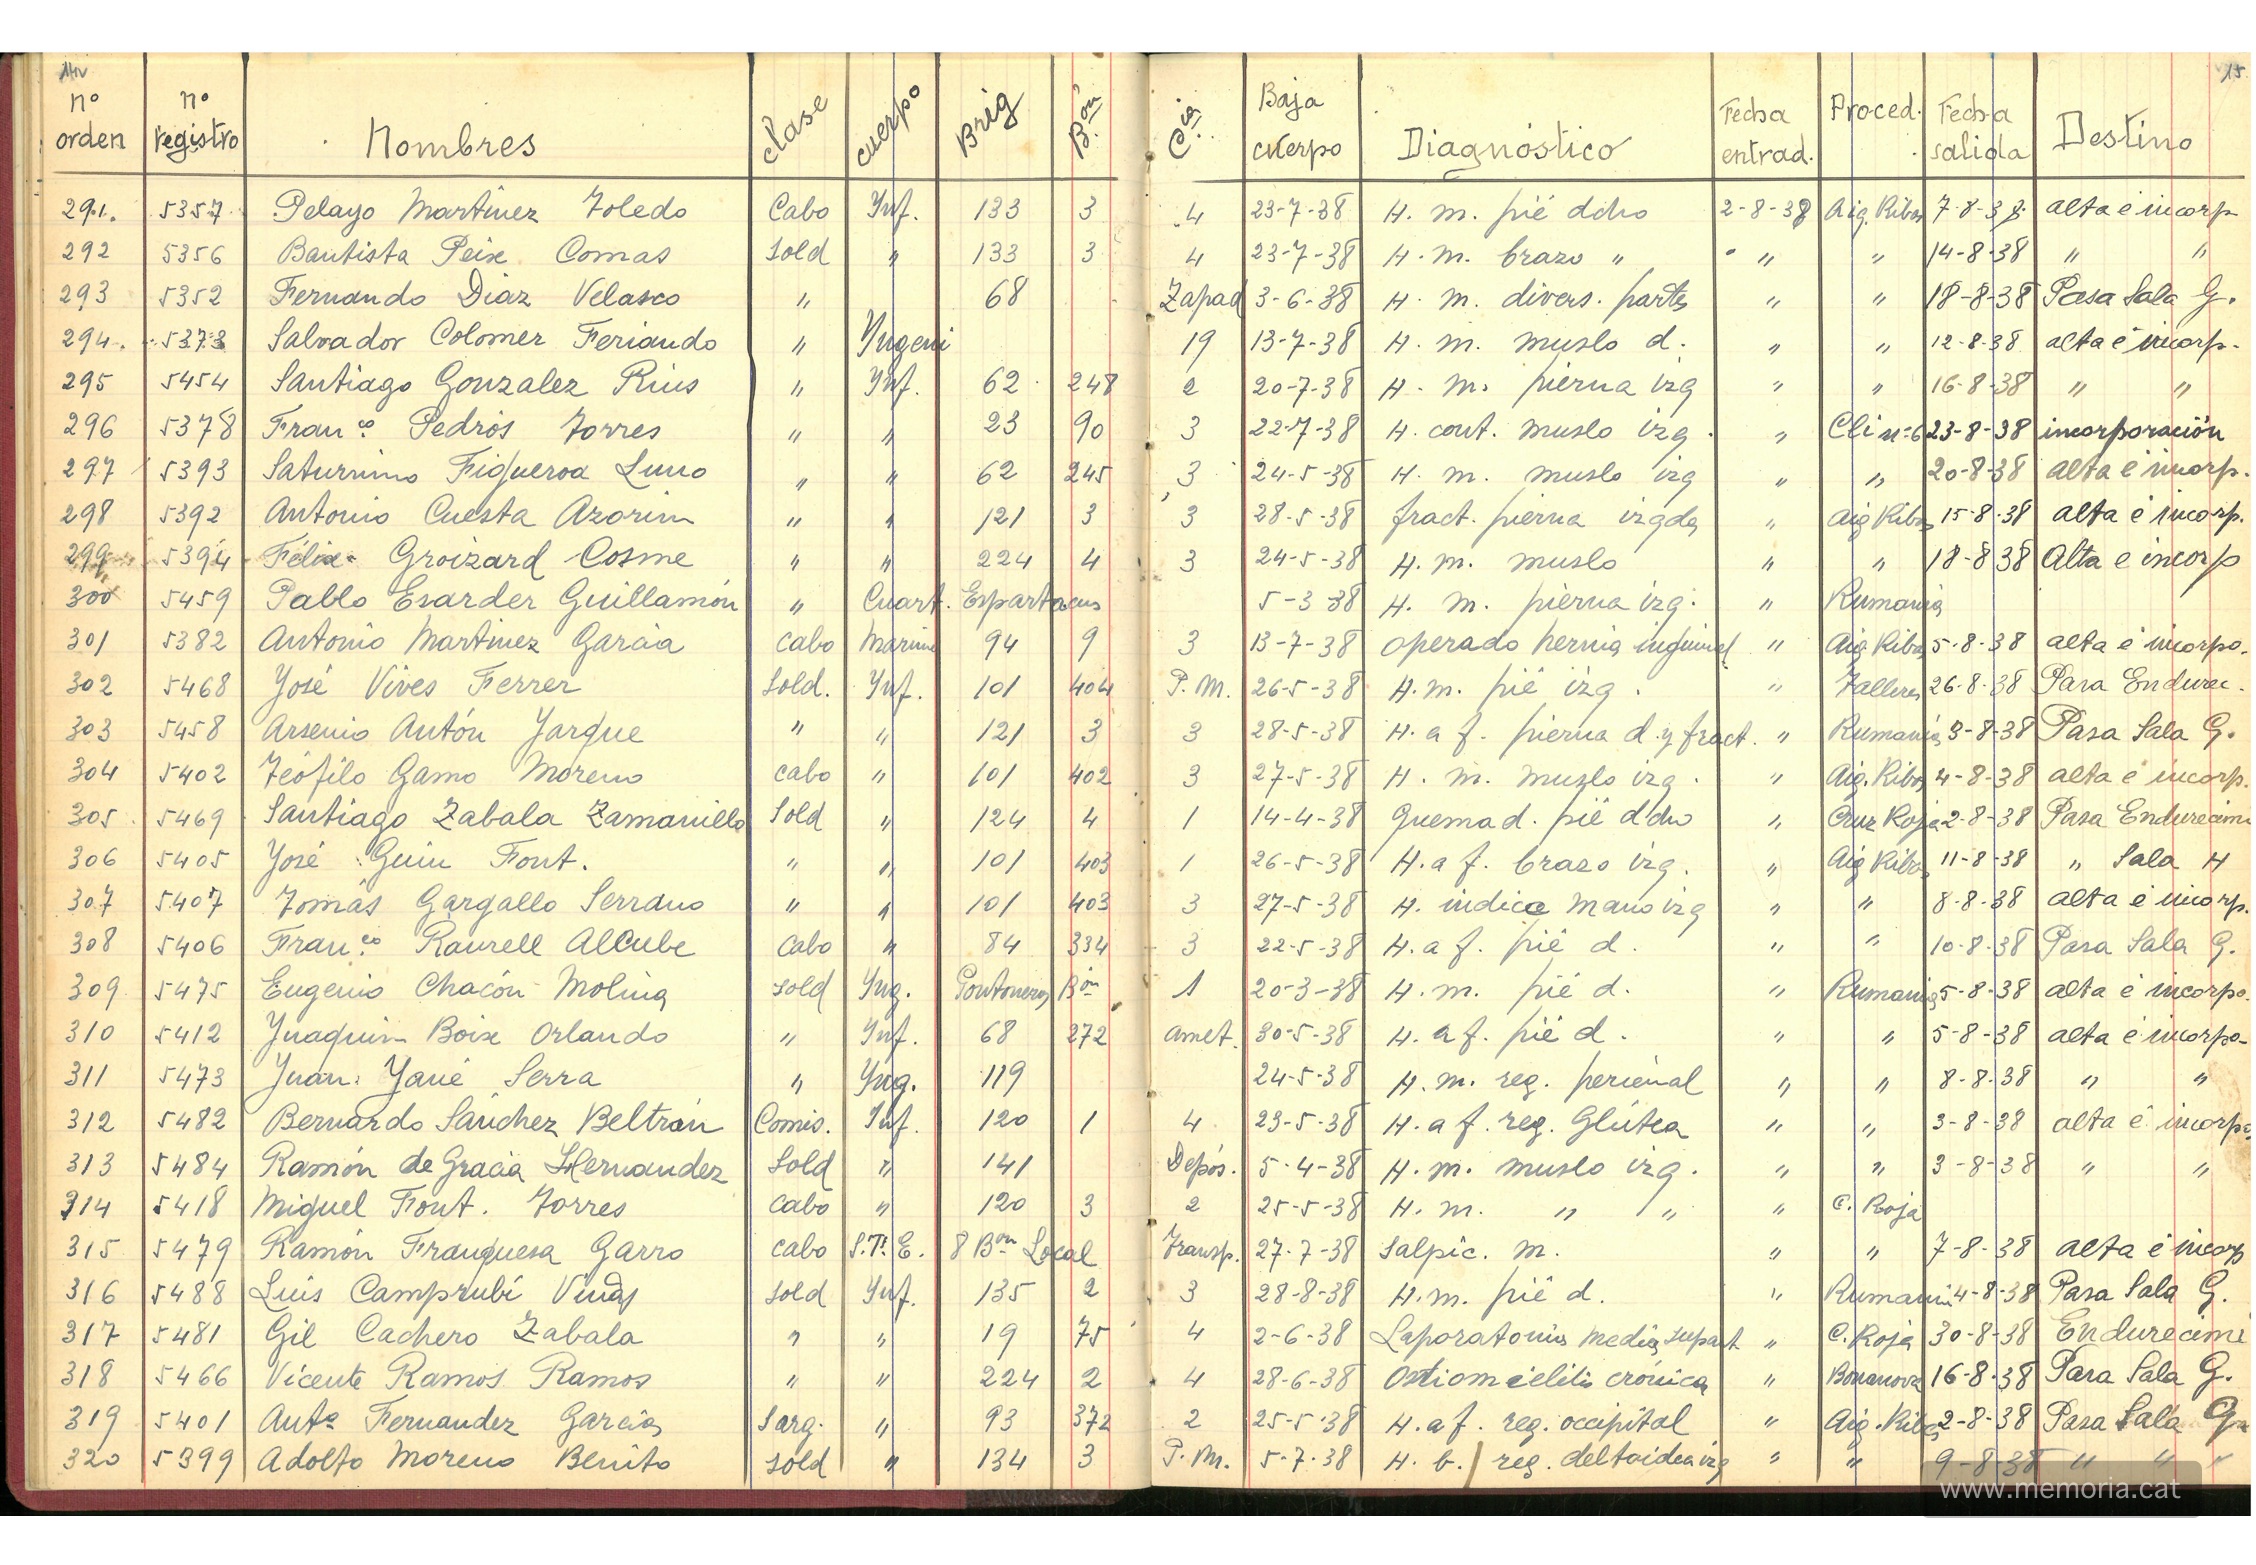 14v 15
nº orden nº registro Nombres clase cuerpo Brig Bón Cía Baja cuerpo Diagnóstico Fecha entrad. Proced. Fecha salida Destino
291. 5357 Pelayo Martinez Toledo Cabo Ynf. 133 3 4 23-7-38 H. m. pié dcho 2-8-38 Aig. Ribas 7-8-38 alta é incorp
292 5356 Bautista Peix Comas Sold " 133 3 4 23-7-38 H. m. brazo " " " 14-8-38 " "
293 5352 Fernando Diaz Velasco " 68 Zapad 3-6-38 H. m. divers. partes " " 18-8-38 Pasa Sala G.
294. 5373 Salvador Colomer Feriando " Yngeni 19 13-7-38 H. m. muslo d. " " 12-8-38 alta é incorp.
295 5454 Santiago Gonzalez Rius " Ynf. 62 248 2 20-7-38 H. m. pierna izq " " 16-8-38 " "
296 5378 Franco Pedrós Torres " " 23 90 3 22-7-38 H. cont. muslo izq. " Cli nº 6 23-8-38 incorporación
297 5393 Saturnino Figueroa Luno " " 62 245 3 24-5-38 H. m. muslo izq " " 20-8-38 alta é incorp.
298 5392 Antonio Cuesta Azorin " " 121 3 3 28-5-38 fract. pierna izqda " Aig Ribas 15-8-38 alta é incorp.
299 5394 Félix Groizard Cosme " " 224 4 3 24-5-38 H. m. muslo " " 18-8-38 Alta e incorp
300 5459 Pablo Esarder Guillamón " Cuart. Espartacus 5-3-38 H. m. pierna izq. " Rumania
301 5382 Antonio Martinez Garcia cabo Marina 94 9 3 13-7-38 operado hernia inguinal " Aig Ribas 5-8-38 alta é incorpo.
302 5468 José Vives Ferrer Sold. Ynf. 101 404 P. M. 26-5-38 H. m. pié izq. " Talleres 26-8-38 Para Endurec.
303 5458 Arsenio Antón Yarque " " 121 3 3 28-5-38 H. a f. pierna d. y fract. " Rumania 3-8-38 Pasa Sala G.
304 5402 Teófilo Gamo Moreno cabo " 101 402 3 27-5-38 H. m. muslo izq. " Aig. Ribas 4-8-38 alta é incorp.
305 5469 Santiago Zabala Zamanillo Sold " 124 4 1 14-4-38 Quemad. pié d'cho " Cruz Roja 2-8-38 Pasa Endurecimi
306 5405 José Guiu Font. " " 101 403 1 26-5-38 H. a f. brazo izq. " Aig Ribas 11-8-38 " Sala H
307 5407 Tomás Gargallo Serrano " " 101 403 3 27-5-38 H. indice mano izq " " 8-8-38 alta é incorp.
308 5406 Franco Raurell Alcube cabo " 84 334 3 22-5-38 H. a f. pié d. " " 10-8-38 Pasa Sala G.
309 5475 Eugenio Chacón Molina sold Yng. Pontoneros Bón 1 20-3-38 H. m. pié d. " Rumania 5-8-38 alta é incorpo.
310 5412 Juaquin Boix Orlando " Ynf. 68 272 amet. 30-5-38 H. a f. pié d. " " 5-8-38 alta é incorpo-
311 5473 Juan Yané Serra " Yng. 119 24-5-38 H. m. reg. perienal " " 8-8-38 " "
312 5482 Bernardo Sánchez Beltrán Comis. Inf. 120 1 4 23-5-38 H. a f. reg. Glútea " " 3-8-38 alta é incorpo
313 5484 Ramón de Gracia Hernandez Sold " 141 Depós. 5-4-38 H. m. muslo izq. " " 3-8-38 " "
314 5418 Miguel Font. Torres cabo " 120 3 2 25-5-38 H. m. " " " C. Roja
315 5479 Ramón Franquesa Garro cabo S.T.E. 8 Bón Local Transp. 27-7-38 Salpic. m. " " 7-8-38 alta é incorp
316 5488 Luis Camprubí Vinas sold Ynf. 135 2 3 28-8-38 H. m. pié d. " Rumania 4-8-38 Pasa Sala G.
317 5481 Gil Cachero Zabala " " 19 75 4 2-6-38 Laporatomia media supart " C. Roja 30-8-38 Endurecimi
318 5466 Vicente Ramos Ramos " " 224 2 4 28-6-38 Ostiomielitis crónica " Bonanova 16-8-38 Para Sala G.
319 5401 Antº Fernandez Garcia Sarg. " 93 372 2 25-5-38 H. a f. reg. occipital " Aig. Ribas 2-8-38 Pasa Sala G.
320 5399 Adolfo Moreno Benito sold " 134 3 P. M. 5-7-38 H. b. reg. deltoidea izq " " 9-8-38 " " "
www.memoria.cat